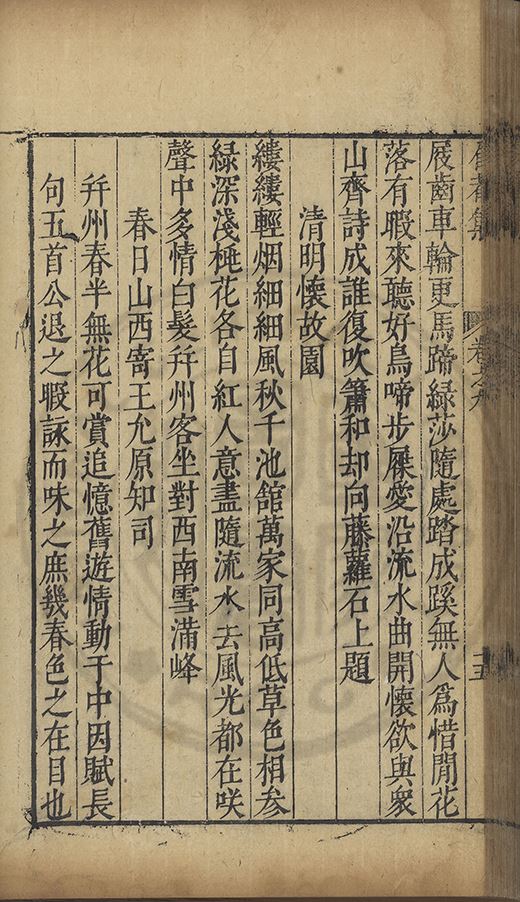 屐齒車輪更馬蹄綠莎隨處踏成蹊無人爲惜閒花
落有暇來聽好鳥啼步屧愛沿流水曲開懷欲與衆
山齊詩成誰復吹簫和却向藤蘿石上題
清明懷故園
縷縷輕烟細細風秋千池舘萬家同高低草色相參
綠深淺桃花各自紅人意盡隨流水去風光都在咲
聲中多情白髮幷州客坐對西南雪滿峰
春日山西寄王允原知司
幷州春半無花可賞追憶舊遊情動于中因賦長
句五首公退之暇詠而味之庶幾春色之在目也